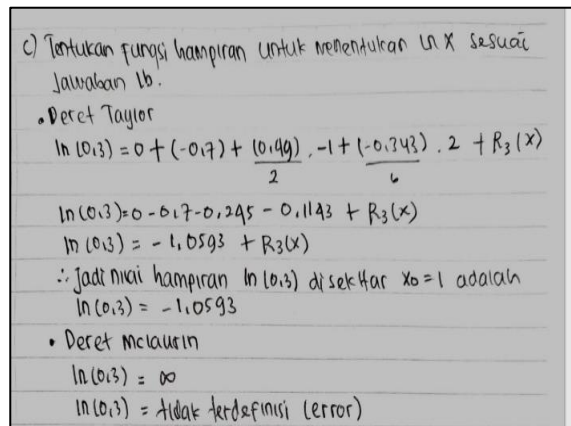 c) Tentukan fungsi hampiran untuk menentukan ln x sesuai
Jawaban 1b.
• Deret Taylor
ln (0,3) = 0 + (-0,7) + (0,49)/2 . -1 + (-0,343)/6 . 2 + R₃(x)
ln (0,3) = 0 - 0,7 - 0,245 - 0,1143 + R₃(x)
ln (0,3) = - 1,0593 + R₃(x)
∴ Jadi nilai hampiran ln (0,3) disekitar x₀ = 1 adalah
ln (0,3) = -1,0593
• Deret mclaurin
ln (0,3) = ∞
ln (0,3) = tidak terdefinisi (error)